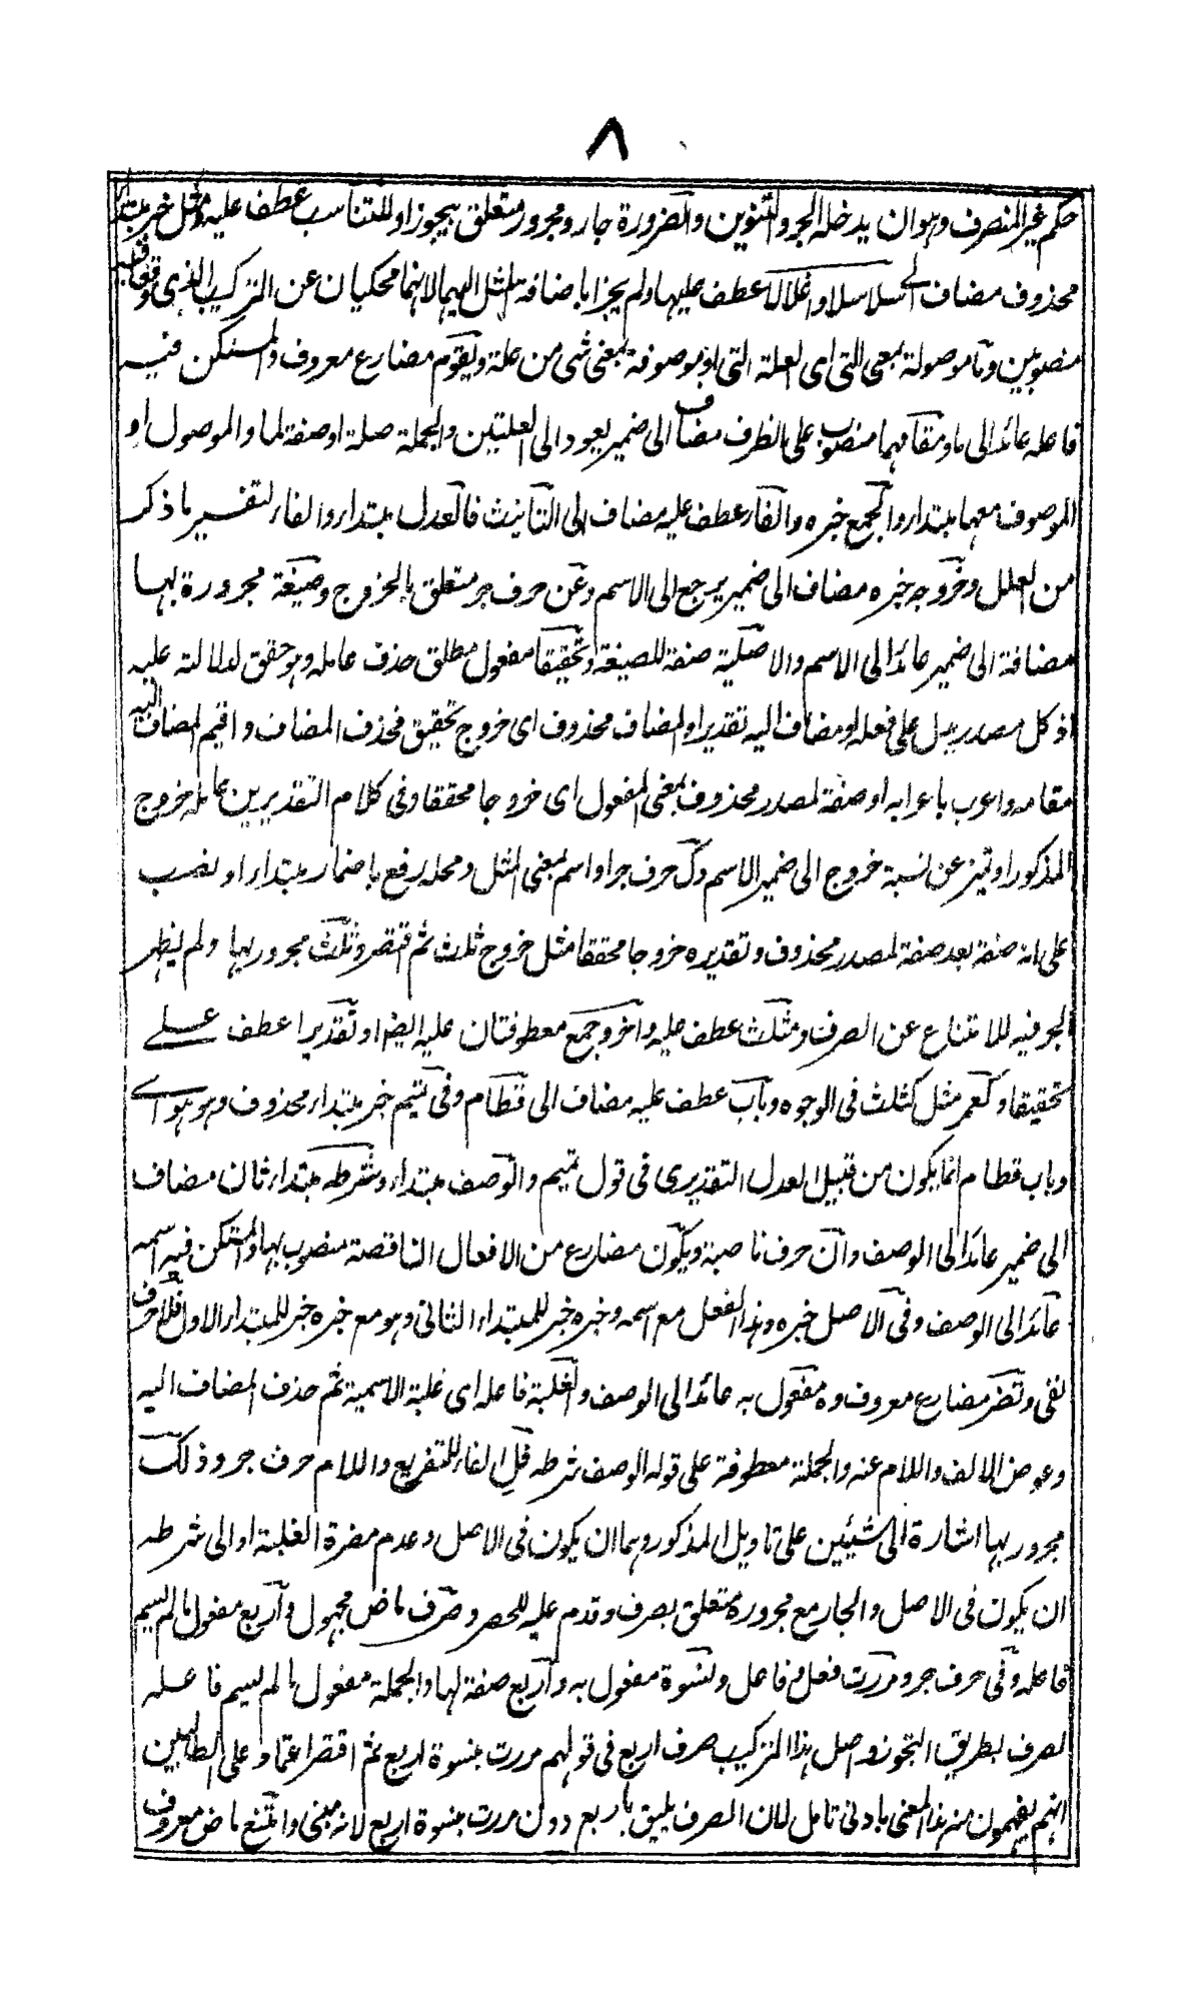 ٨
حكم غير المنصرف وهو ان يدخله الجر والتنوين وللضرورة جار ومجرور متعلق بيجوز او للتناسب عطف عليه ومثل خبر مبتدأ
محذوف مضاف الى سلاسلا واغلالا عطف عليها ولم يجرا باضافة مثل اليهما لانهما محكيان عن التركيب الذي وقعا فيه
منصوبين وما موصولة بمعنى التي اى العلة التي او موصوفة بمعنى شئ من علة ويقوم مضارع معروف والمستكن فيه
فاعله عائد الى ما ومقامهما منصوب على الظرف مضاف الى ضمير يعود الى العلتين والجملة صلة او صفة لما والموصول او
الموصوف معهما مبتداء والجمع خبره والفا عطف عليه مضاف الى التأنيث فالعدل مبتداء والفاء لتفسير ما ذكر
من العلل وخروجه خبره مضاف الى ضمير يرجع الى الاسم وعن حرف جر متعلق بالخروج وصيغة مجرورة بها
مضافة الى ضمير عائد الى الاسم والاصلية صفة للصيغة وتحقيقا مفعول مطلق حذف عامله وهو حقق لدلالته عليه
اذ كل مصدر يدل على فعله او مضاف اليه تقديرا والمضاف محذوف اى خروج تحقيق فحذف المضاف واقيم المضاف اليه
مقامه واعرب باعرابه او صفة لمصدر محذوف بمعنى المفعول اى خروجا محققا وفي كلام التقديرين عامله خروج
المذكور او تميز عن نسبة خروج الى ضمير الاسم وك حرف جر او اسم بمعنى المثل ومحله رفع باضمار مبتداء او نصب
على انه صفة بعد صفة لمصدر محذوف وتقديره خروجا محققا مثل خروج ثلث ثم اقتصر وثلث مجرور بها ولم يظهر
الجر فيه للامتناع عن الصرف ومثلث عطف عليه واخر وجمع معطوفتان عليه ايضا او تقديرا عطف على
تحقيقا وكعمر مثل كثلث في الوجوه وباب عطف عليه مضاف الى قطام وفي تميم خبر مبتداء محذوف وهو هو اى
وباب قطام انما يكون من قبيل العدل التقديري في قول تميم والوصف مبتداء وشرطه مبتداء ثان مضاف
الى ضمير عائد الى الوصف وان حرف ناصبة ويكون مضارع من الافعال الناقصة منصوب بها والمستكن فيه اسمه
عائد الى الوصف وفي الاصل خبره وهذا الفعل مع اسمه وخبره خبر للمبتداء الثاني وهو مع خبره خبر للمبتداء الاول فلا حرف
نفى وتضر مضارع معروف وه مفعول به عائد الى الوصف والغلبة فاعله اى غلبة الاسمية ثم حذف المضاف اليه
وعوض الالف واللام عنه والجملة معطوفة على قوله الوصف شرطه فل الفاء للتفريع واللام حرف جر وذلك
مجرور بها اشارة الى الشيئين على تاويل المذكور وهما ان يكون في الاصل وعدم مضرة الغلبة او الى شرطه
ان يكون في الاصل والجار مع مجروره متعلق بصرف وقدم عليه للحصر وصرف ماض مجهول واربع مفعول ما لم يسم
فاعله وفي حرف جر ومررت فعل وفاعل ونسوة مفعول به واربع صفة لها والجملة مفعول ما لم يسم فاعله
لصرف بطريق التجوز واصل هذا التركيب صرف اربع في قولهم مررت بنسوة اربع ثم اقتصر اعتمادا على الطالبين
انهم يفهمون منه هذا المعنى بادنى تامل لان الصرف يليق باربع دون مررت بنسوة اربع لانه مبني وامتنع ماض معروف